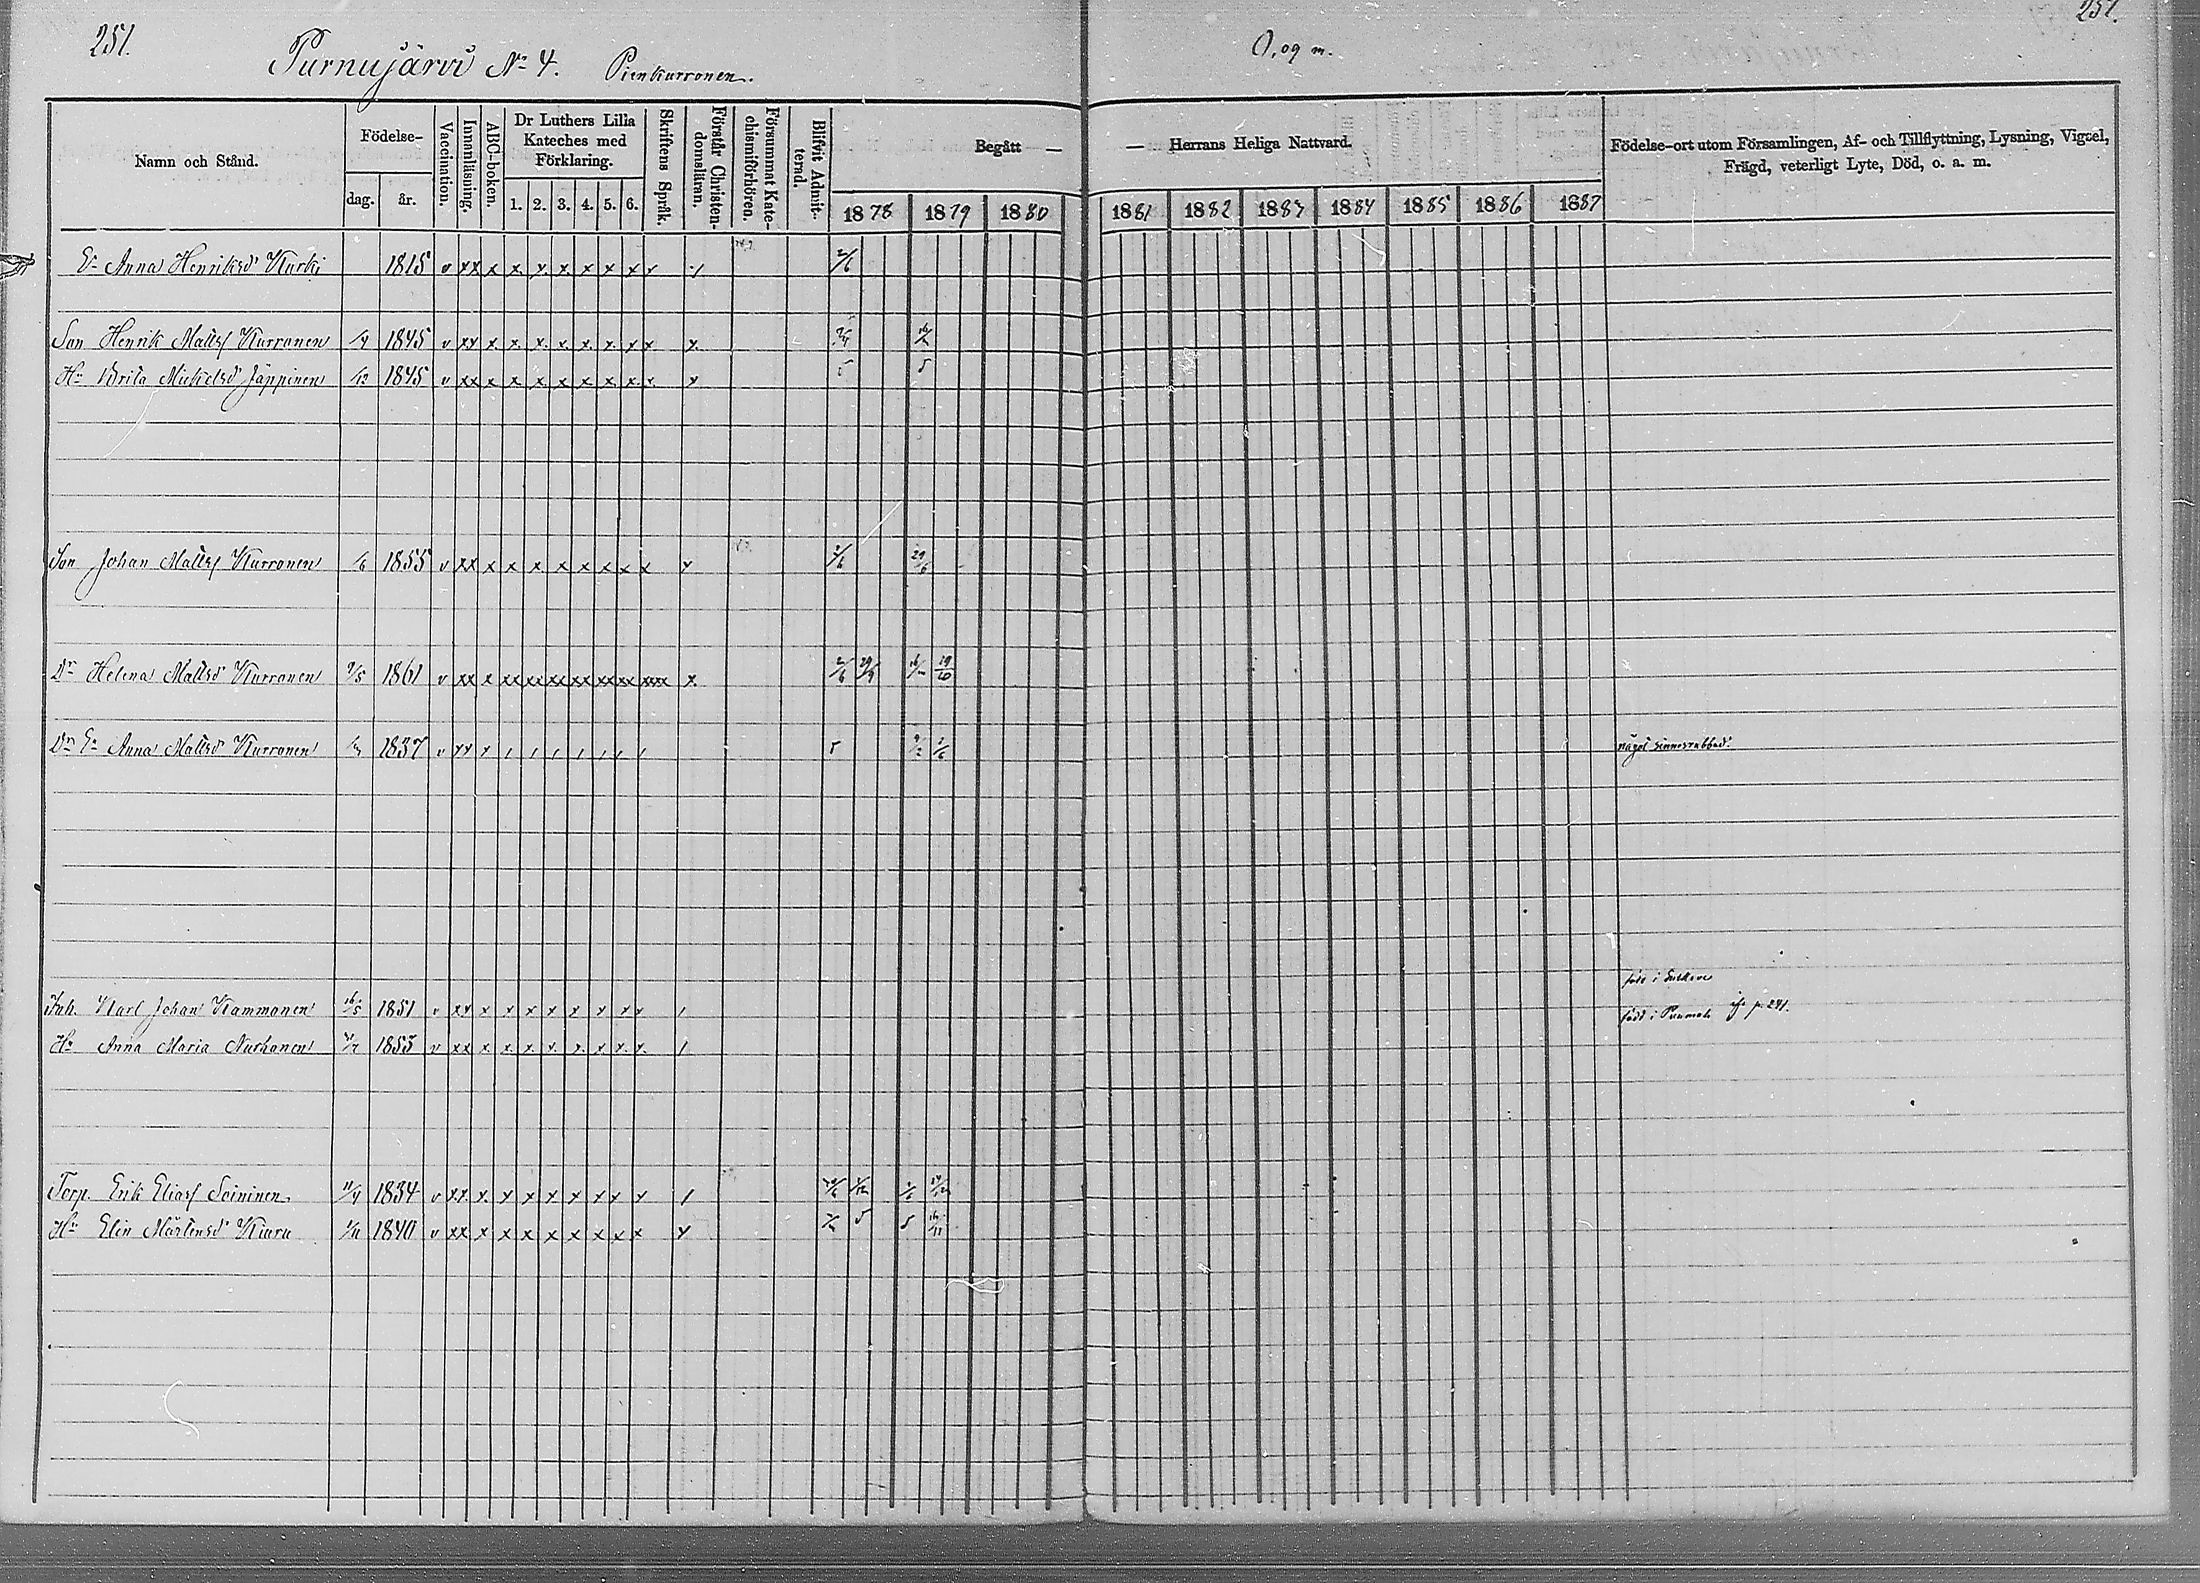 251.
251.
Purnujärvi No 4. Pienkurronen.
0,09 m.
Namn och Stånd.
Födelse-
dag.
år.
Vaccination.
Innanläsning.
ABC-boken.
Dr Luthers Lilla
Kateches med
Förklaring.
1. 2. 3. 4. 5. 6.
Skriftens Språk.
Förstår Christen-
domsläran.
Försummat Kate-
chismiförhören.
Blifvit Admit-
terad.
Begått —
— Herrans Heliga Nattvard.
1878 1879 1880 1881 1882 1883 1884 1885 1886 1887
Födelse-ort utom Församlingen, Af- och Tillflyttning, Lysning, Vigsel,
Frägd, veterligt Lyte, Död, o. a. m.
Ea Anna Henriksd Kurki 1815 v xx x x x x x x x x 2/6
Son Henrik Matts Kurronen 1845 v xx x x x x x x x x x
Hu Brita Mickelsd Jäppinen /12 1845 v xx x x x x x x x x x 5 5
Son Johan Matts Kurronen /6 1855 v xx x x x x x x x x x 2/6 29/6
Dr Helena Mattsd Kurronen 9/5 1861 v xx x xx xx xx xx xx xx xxx x 2/6 29/9 19/10
Dr Ea Anna Mattsd Kurronen 1837 v xx x / / / / / / / 5 2/6 något sinnesrubbad.
född i
Inh. Karl Johan Kammonen 16/5 1851 v xx x x x x x x x x /
född i Puumala p. 241.
Hu Anna Maria Nurhonen 1855 v xx x x x x x x x x /
Torp. Erik Elias Soininen 11/4 1834 v xx x x x x x x x x /
Hu Elin Mårtensd Kiuru /11 1840 v xx x x x x x x x x x 5 5